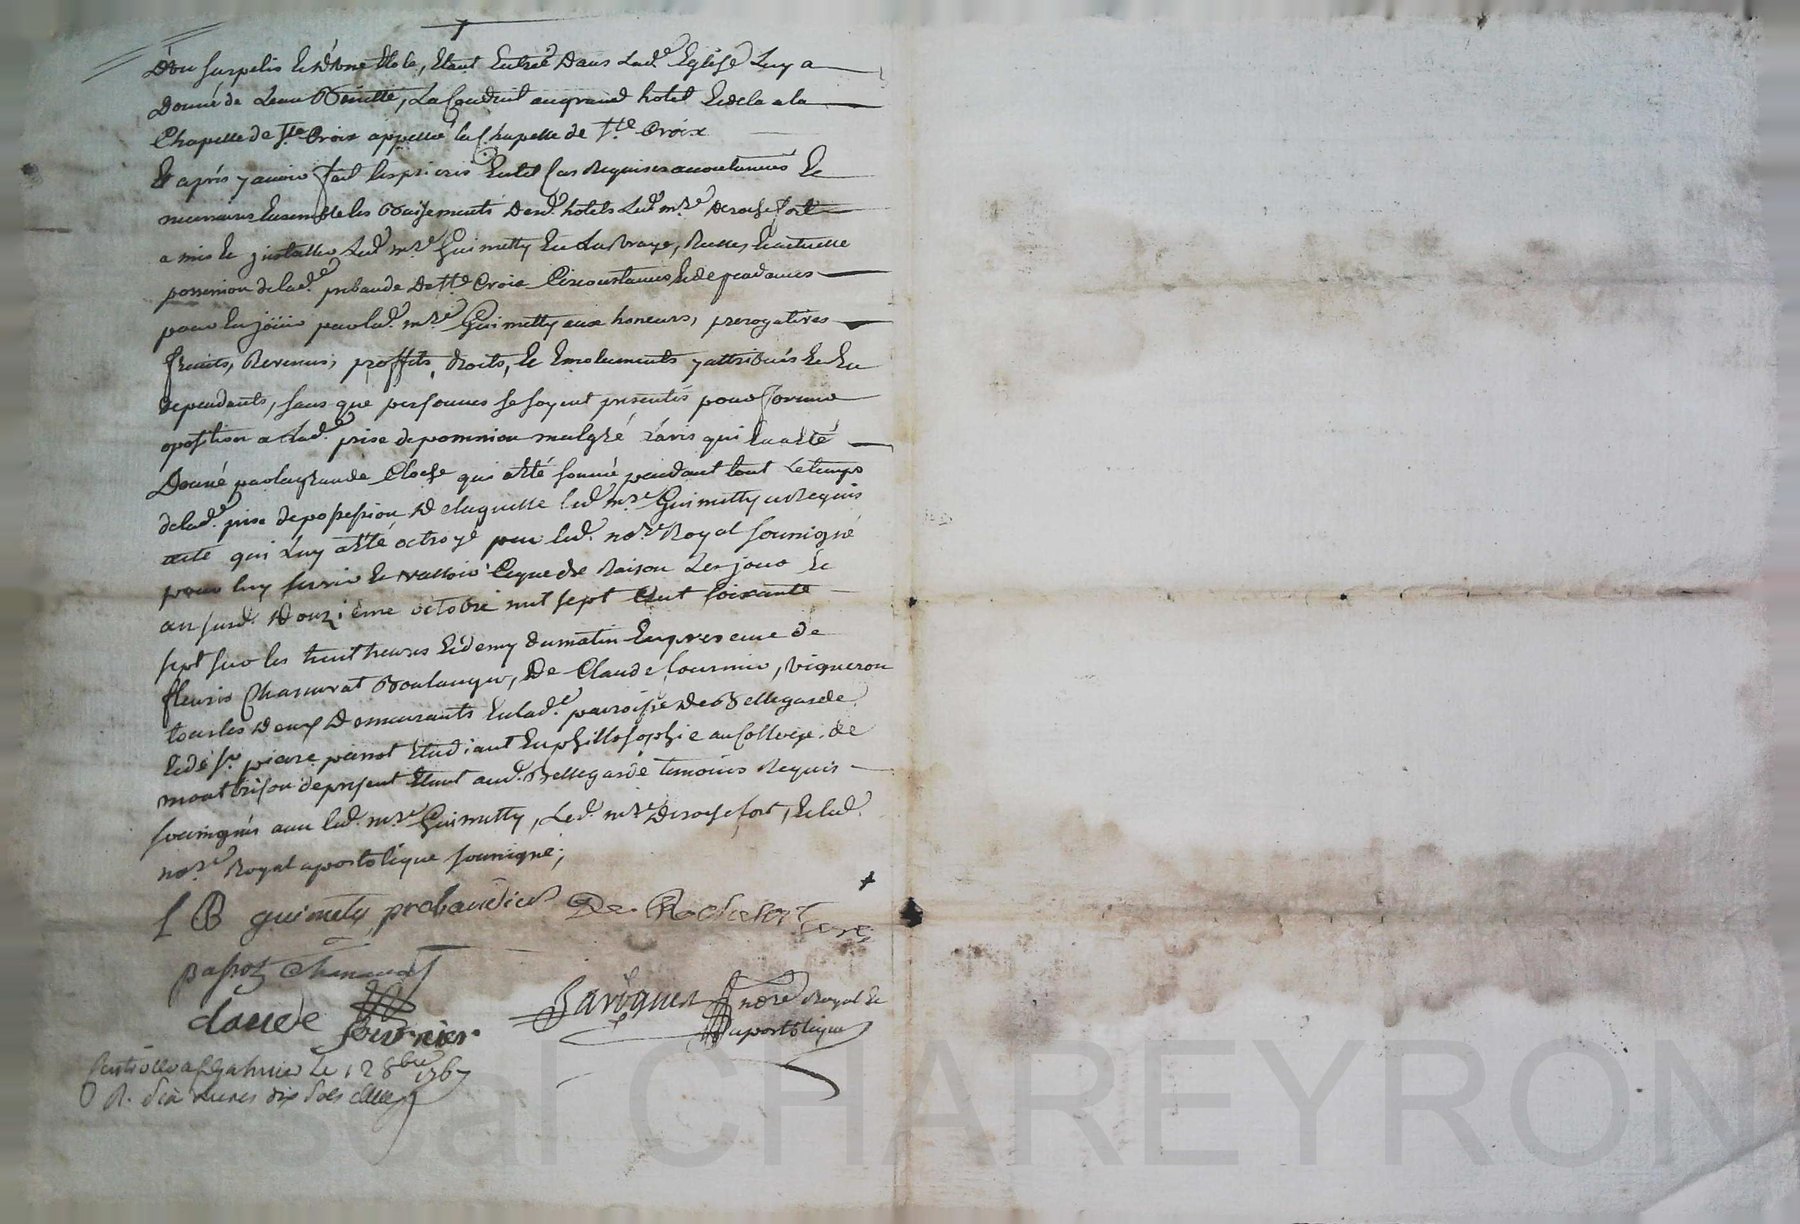 D'un surpelis et d'une étole, Etant Entrée Dans Lad.e Eglise Luy a
Donné de Leau Benitte, La Conduit au grand hotel Et dela a la
Chapelle de Ste Croix appellé la Chapelle de Ste Croix
Et après y avoir fait les prieres En tel Cas Requises accoutumées Et
necessaires Ensemble les Baisements Desd. hotels Led. mre Derochefort
a mis Et installe Led. mre Guimetty En La Vraye, Reelle, Et actuelle
possession de lad.e prebande De Ste Croix Circonstances Et dependances
pour En jouir par led. mre Guimetty aux honeurs, prerogatives
fruits, Revenus, proffits, droits, Et Emoluments y attribués Et En
dependants, sans que personnes se soyent presentés pour former
oposition a Lad.e prise de possession malgré L'avis qui En a Eté
Donné par la grande Cloche qui a Eté sonné pendant tout Le temps
de lad.e prise de possession De laquelle led. mre Guimetty a Requis
acte qui Luy a Eté octroyé par led. nore Royal soussigné
pour luy servir Et valloir Ce que de Raison Les jour Et
an susd. Douzième octobre mil sept Cent soixante
sept sur les huit heures Et demy du matin En presence de
fleuris Chassurat Boulanger, De Claude fournier, Vigneron
tous les Deux Demeurants En lad.e paroisse De Bellegarde
Et de Sr piere passot Etudiant En phillosophie au College de
montbrison de present Etant aud. Bellegarde temoins Requis
soussignés avec led. mre Guimetty, Led. mre Derochefort, Et led.
nore Royal apostolique soussigné;
J B guimety prebandier De Rochefort curé
passot
claude fournier
nore Royal Et
apostolique
Le 12 8bre 1767
R. six livres dix sols
Pascal CHAREYRON